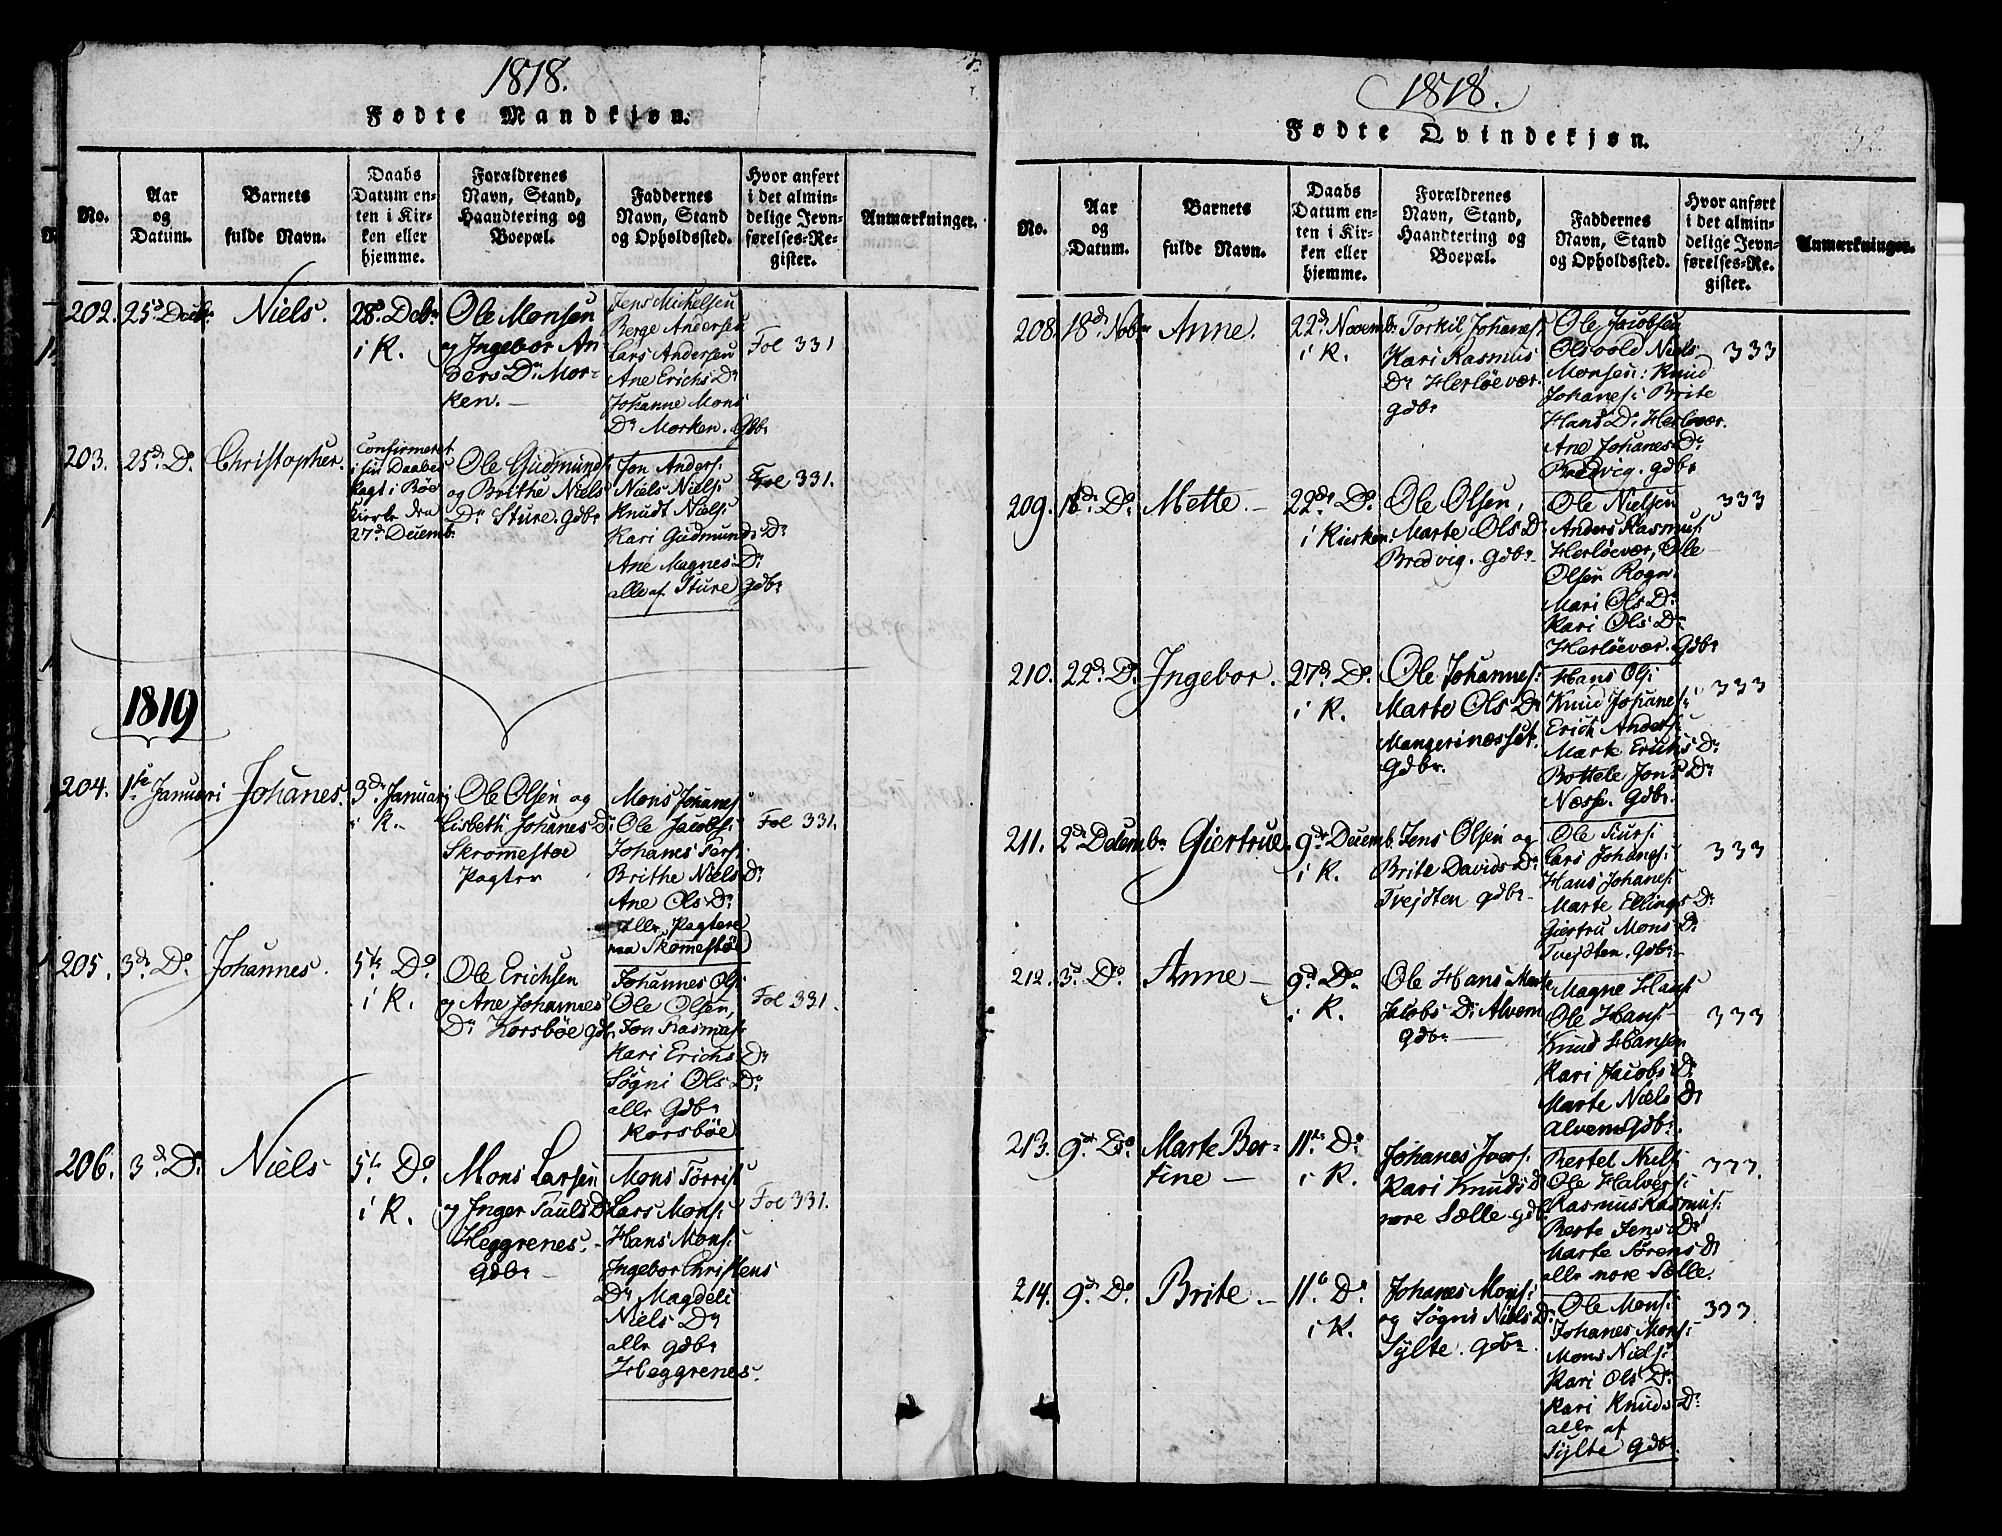 1818.
Fødte Mandkjøn.
No.
Aar
og
Datum.
Barnets
fulde Navn.
Daabs
Datum en-
ten i Kir-
ken eller
hjemme.
Forældrenes
Navn, Stand,
Haandtering og
Boepæl.
Faddernes
Navn, Stand
og Opholdssted.
Hvor anført
i det almin-
delige Jevn-
førelses-Re-
gister.
Anmærkninger.
202.
25d Decbr
Niels.
28d Debr
i K.
Ole Monsen
og Ingebor An-
ders Dr Mor-
ken. —
Jens Michelsen
Berge Andersen
Lars Andersen
Ane Erichs Dr
Johanne Mons
Dr Morken. Gdbr
Fol 331
203.
25d Do
Christopher.
Confirmeret
i sin Daabes
Pagt i Bøe
Kirke dra
27d Decemb.
Ole Gudmunds:
og Brithe Niels
Dr Sture. gdbr
Jon Anders:
Niels Niels:
Knudt Niels:
Kari Gudmunds Dr
Ane Magnes Dr
alle af Sture gdbr
Fol 331.
1819
204.
1ste Januari
Johanes.
3d Januari
i K.
Ole Olsen og
Lisbeth Johanes Dr
Skromestøe
Pagter
Mons Johanes:
Ole Jacobs:
Johanes Pers:
Brithe Niels Dr
Ane Ols Dr
alle Pagtere
paa Skomestøe
Fol 331.
205.
3d Do
Johannes.
5te Do
i K.
Ole Erichsen
og Ane Johannes
Dr Korsbøe gdbr
Johannes Ols:
Ole Olsen,
Jon Rasmus:
Kari Erichs Dr
Søgni Ols Dr
alle Gdbr
Korsbøe
Fol 331.
206.
3d Do
Niels
5te Do
i K.
Mons Larsen
og Inger Pauls Dr
Heggrenes. -
Gdbr —
Mons Torris:
Lars Mons:
Hans Mons:
Ingebor Christens
Dr Magdeli
Niels Dr
alle gdbr
Heggrenes.
Fol 331.
1818.
Fødte Qvindekjøn.
32.
No.
Aar
og
Datum.
Barnets
fulde Navn.
Daabs
Datum en-
ten i Kir-
ken eller
hjemme.
Forældrenes
Navn, Stand,
Haandtering og
Boepæl.
Faddernes
Navn, Stand
og Opholdssted.
Hvor anført
i det almin-
delige Jevn-
førelses-Re-
gister.
Anmærkninger.
208.
18de Nobr
Anne.
22d Novemb.
i K.
Torkil Johanes:
Kari Rasmus
Dr Herløevær.
gdbr
Ole Jacobsen
Niels
Monsen: Knud
Johanes: Brite
Hans Dr Herløevær.
Ane Johanes Dr
Bredvig. gdbr
333
209.
18de Do
Mette. —
22de Do
i Kirken.
Ole Olsen,
Marte Ols Dr
Bredvig. Gdbr
Ole Nielsen
Anders Rasmus:
Herløevær, Ole
Olsen Rogn.
Mari Ols Dr
Kari Ols Dr
Herløevær. Gdbr
333
210.
22d Do
Ingebor.
27d Do
i K.
Ole Johannes:
Marte Ols Dr
Mangerinæsset.
Gdbr.
Hans Ols:
Knud Johanes:
Erich Anders:
Marte Erichs Dr
Bottele Jons Dr
Næsse. Gdbr.
333
211.
2d Decembr
Giertrue.
9de Decemb.
i K.
Jens Olsen og
Brite Davids Dr
Tvejten gdbr
Ole Siurs:
Lars Johanes:
Hans Johanes:
Marte Ellings Dr
Giertru Mons Dr
Tvejten. Gdbr.
333
212.
3d Do
Anne —
9d Do
i K.
Ole Hans: Marte
Jacobs Dr Alvem
Gdbr —
Magne Hans:
Ole Hans:
Knud Hansen
Kari Jacobs Dr
Marte Niels Dr
Alvem Gdbr.
333
213.
9d Do
Marte Ber-
tine —
11te Do
i K.
Johanes Ivers:
Kari Knuds Dr
nore Sælle gdbr
Bertel Niels:
Ole Halvers:
Rasmus Rasmus:
Berte Jens Dr
Marte Sørens Dr
alle nore Sælle.
333.
214.
9d Do
Brite —
11te Do
i K.
Johanes Mons:
og Søgni Niels Dr
Sylte. gdbr
Ole Mons:
Johanes Mons:
Mons Niels:
Kari Ols Dr
Kari Knuds Dr
alle af
Sylte Gdbr.
333.